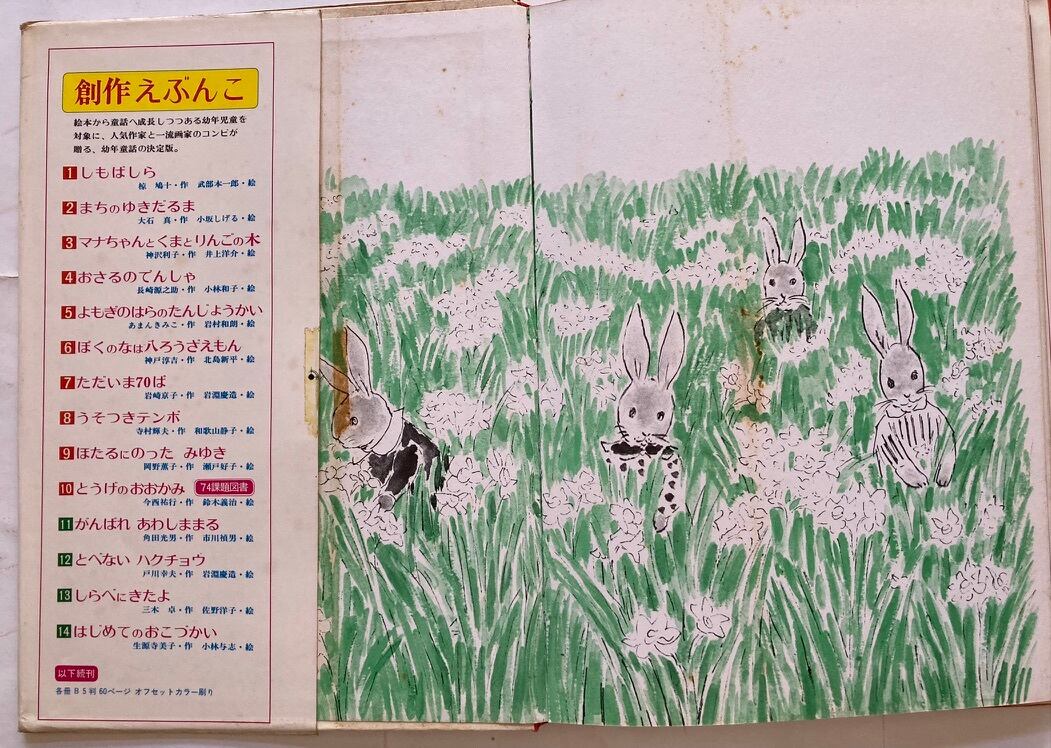 創作えぶんこ
絵本から童話へ成長しつつある幼年児童を
対象に、人気作家と一流画家のコンビが
贈る、幼年童話の決定版。
1 しもばしら
椋 鳩十・作 武部本一郎・絵
2 まちのゆきだるま
大石 真・作 小坂しげる・絵
3 マナちゃんとくまとりんごの木
神沢利子・作 井上洋介・絵
4 おさるのでんしゃ
長崎源之助・作 小林和子・絵
5 よもぎのはらのたんじょうかい
あまんきみこ・作 岩村和朗・絵
6 ぼくのなは八ろうざえもん
神戸淳吉・作 北島新平・絵
7 ただいま70ぱ
岩崎京子・作 岩淵慶造・絵
8 うそつきテンボ
寺村輝夫・作 和歌山静子・絵
9 ほたるにのった みゆき
岡野薫子・作 瀬戸好子・絵
10 とうげのおおかみ 74課題図書
今西祐行・作 鈴木義治・絵
11 がんばれ あわしままる
角田光男・作 市川禎男・絵
12 とべない ハクチョウ
戸川幸夫・作 岩淵慶造・絵
13 しらべにきたよ
三木 卓・作 佐野洋子・絵
14 はじめてのおこづかい
生源寺美子・作 小林与志・絵
以下続刊
各冊 B5判 60ページ オフセットカラー刷り